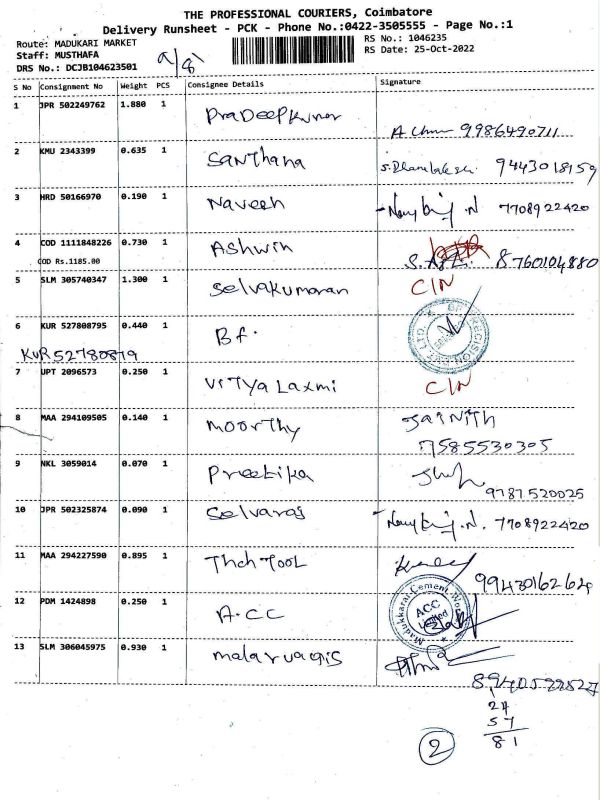 THE PROFESSIONAL COURIERS, Coimbatore
Delivery Runsheet - PCK - Phone No.:0422-3505555 - Page No.:1
Route: MADUKARI MARKET
RS No.: 1046235
Staff: MUSTHAFA
RS Date: 25-Oct-2022
DRS No.: DCJB104623501
S No Consignment No Weight PCS Consignee Details Signature
1 JPR 502249762 1.880 1 Pradeepkumar
9986490711
2 KMU 2343399 0.635 1 Santhana 9443018159
3 HRD 50166970 0.190 1 Naveen 7708922420
4 COD 1111848226 0.730 1 Ashwin
COD Rs.1185.00 8760104880
5 SLM 305740347 1.300 1 Selvakumaran C/N
6 KUR 527808795 0.440 1 Bf.
KUR 52780879
7 UPT 2096573 0.250 1 Vitya Laxmi C/N
8 MAA 294109505 0.140 1 Moorthy Jainith
7585530305
9 NKL 3059014 0.070 1 Preetika
9787520025
10 JPR 502325874 0.090 1 Selvaraj 7708922420
11 MAA 294227590 0.895 1 Thch Tool
9943016264
12 PDM 1424898 0.250 1 A.CC
Madukkarai Cement Works
ACC
Limited
13 SLM 306045975 0.930 1
24
57
81
2